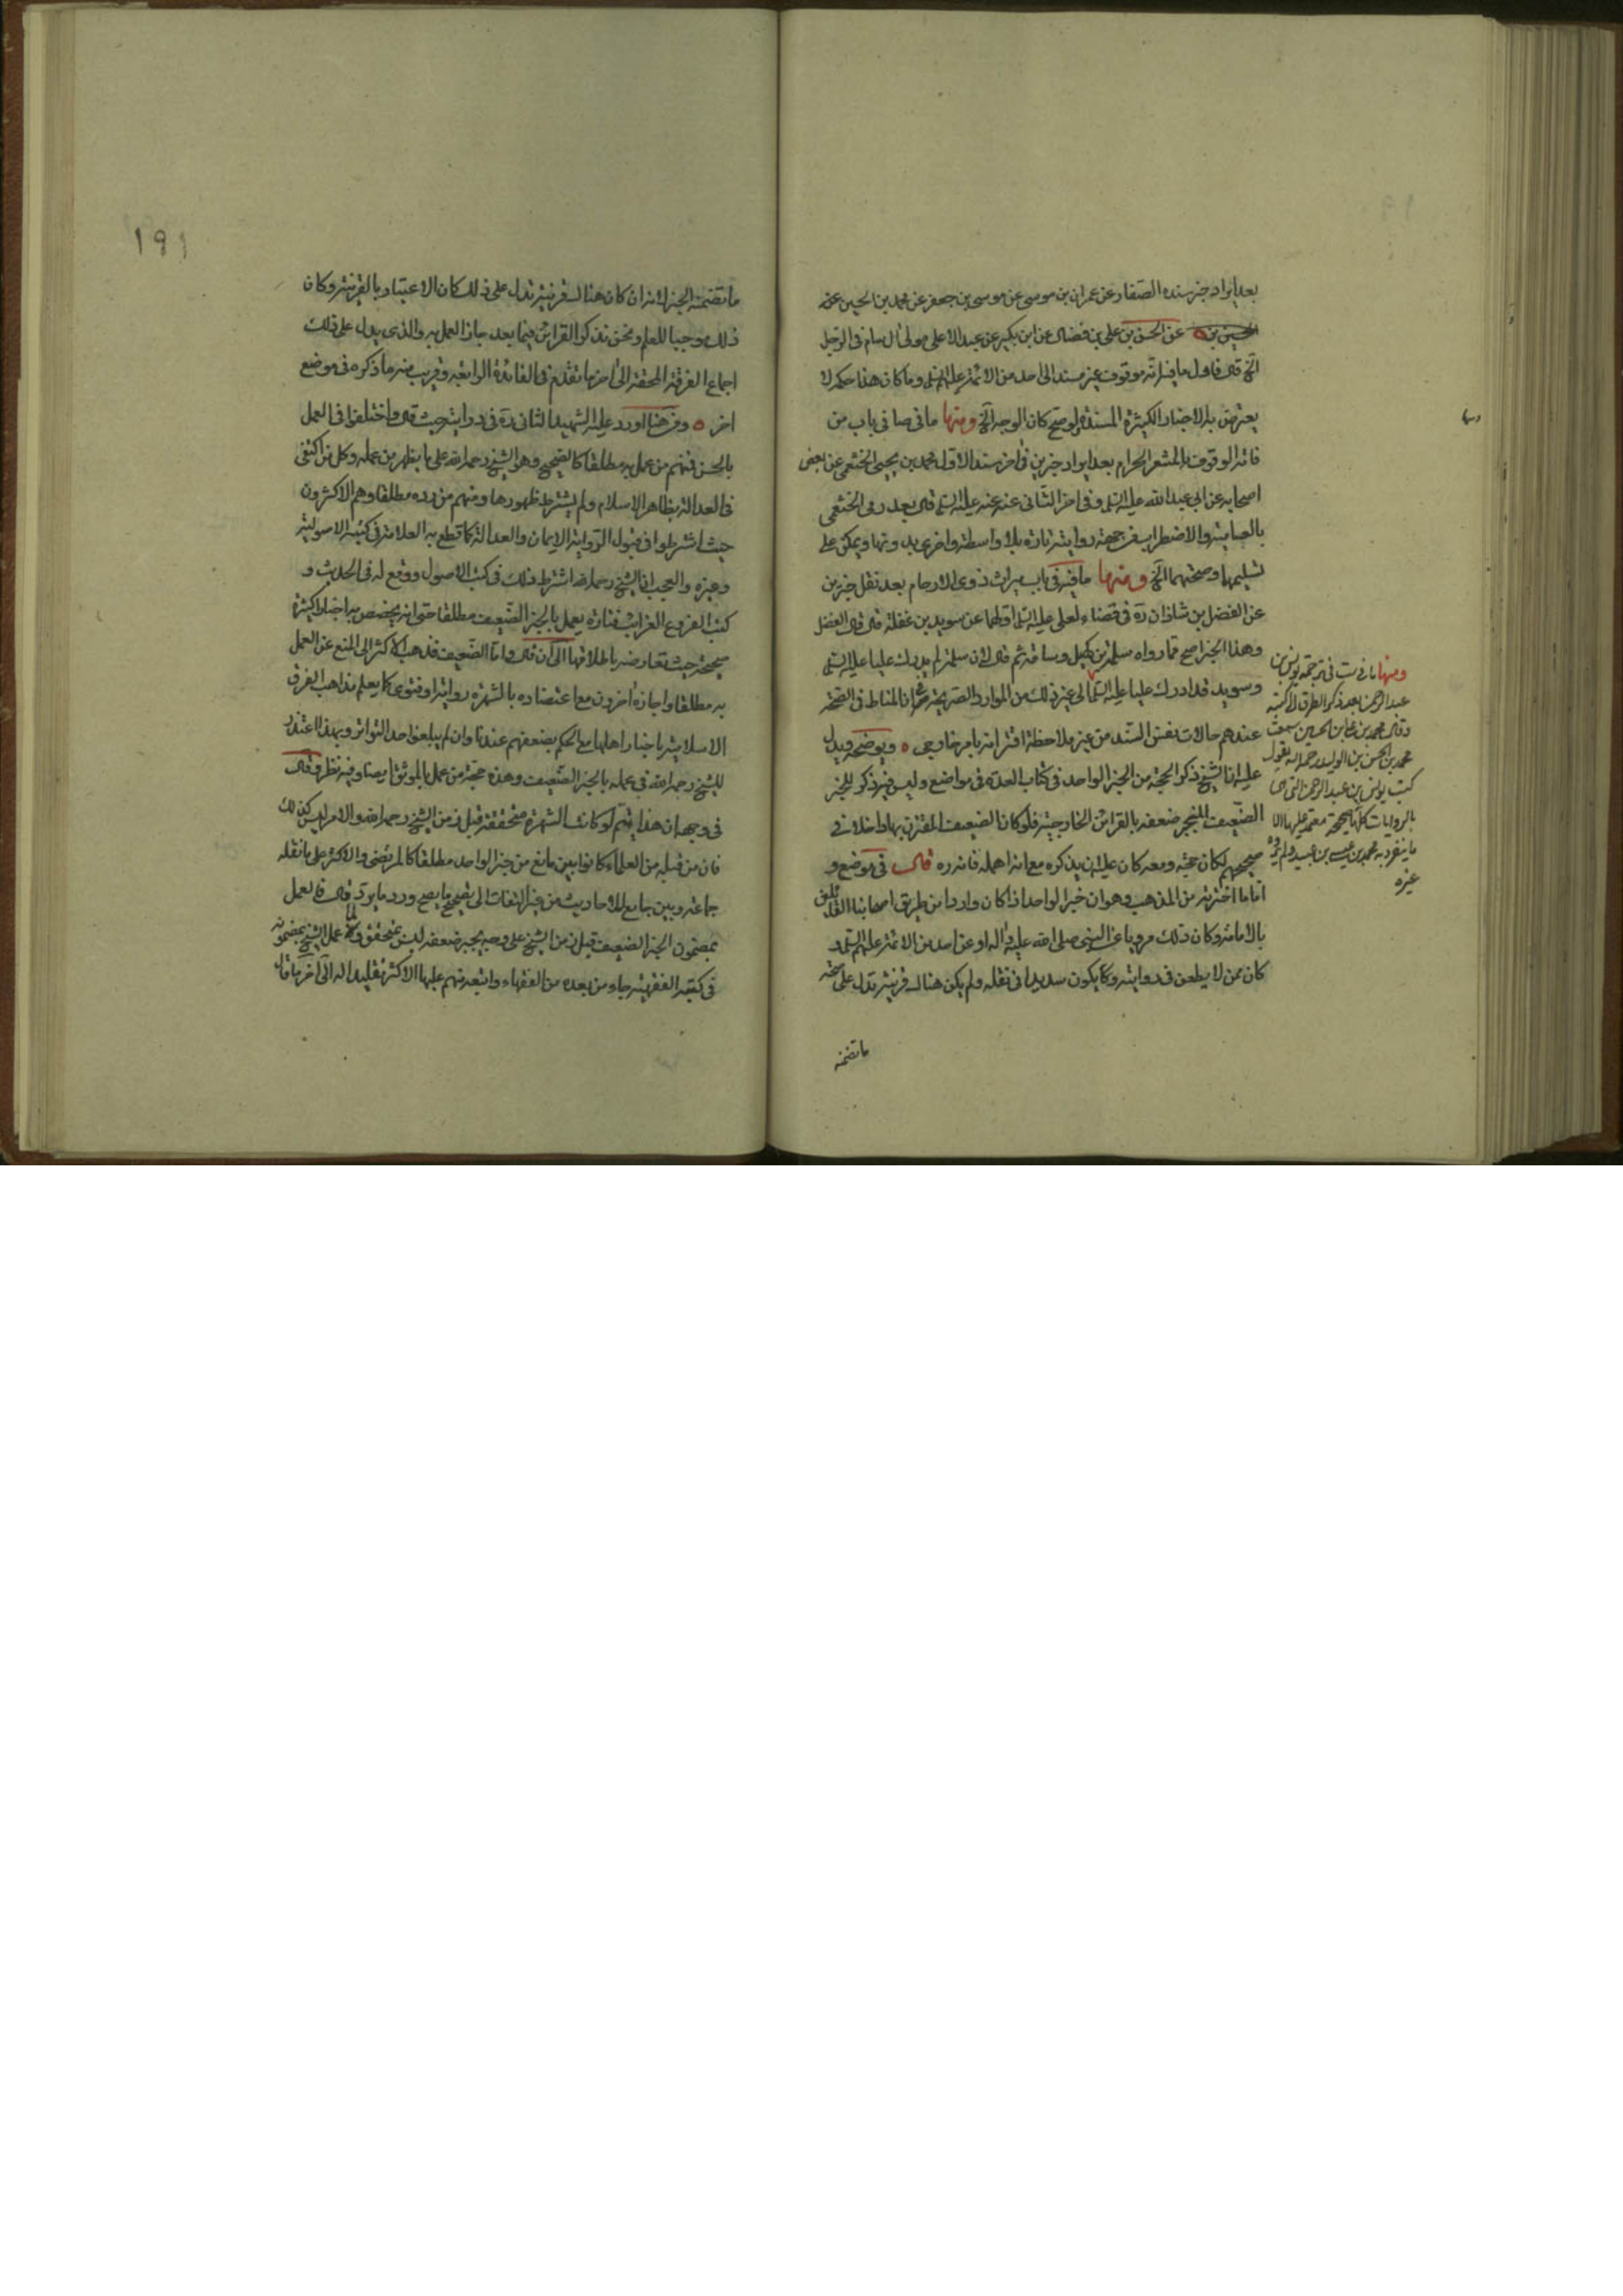 بعد ايراد خبر سنده الصفار عن عمران بن موسى عن موسى بن جعفر عن محمد بن الحسين عن
الحسين بن عن الحسن بن علي بن فضال عن ابن بكير عن عبد الاعلى مولى ال سام في الرجل
الخ قال فاول ما فيه انه موقوف غير مسند الى احد من الائمة عليهم السلم وما كان هذا حكمه لا
يعترض به الاخبار الكثيرة المسندة ولو صح كان الوجه الخ ومنها ما في صا في باب من
فاته الوقوف بالمشعر الحرام بعد ايراد خبرين في اخر سند الاول محمد بن يحيى الخثعمي عن بعض
اصحابه عن ابي عبد الله عليه السلم وفي اخر الثاني عنه عنه عليه السلم قال بعد رمى الخثعمي
بالعامية والاضطراب من جهة روايته تارة بلا واسطة واخرى بدونها ويمكن على
تسليمها وصحتهما الخ ومنها ما فيه في باب ميراث ذوى الارحام بعد نقل خبرين
عن الفضل بن شاذان ره في قضاء لعلى عليه السلم اولهما عن سويد بن غفلة قال قال الفضل
وهذا الخبر اصح مما رواه سلمة بن كهيل وساقه ثم قال لان سلمة لم يدرك عليا عليه السلم
وسويد قد ادرك عليا عليه السلم الى غير ذلك من الموارد الصريحة في ان المناط في الصحة
عندهم حالات نفس السند من غير ملاحظة اقترانه بامر خارجي ه ويوضحه ويدل
عليه ان الشيخ ذكر الحجة من الخبر الواحد في كتاب العدة في مواضع وليس فيه ذكر للخبر
الضعيف المنجبر ضعفه بالقرائن الخارجية فلو كان الضعيف المقترن بها داخلا في
صحيحهم لكان حجة ومعه كان عليه ان يذكره مع انه اهمله فانه ره قال في موضع و
اما ما اخترته من المذهب وهو ان خبر الواحد اذا كان واردا من طريق اصحابنا القائلين
بالامامة وكان ذلك مرويا عن النبي صلى الله عليه واله او عن احد من الائمة عليهم السلم و
كان ممن لا يطعن في روايته ويكون سديدا في نقله ولم يكن هناك قرينة تدل على صحة
ما تضمنه
ومنها ما في ست في ترجمة يونس بن
عبد الرحمن بعد ذكر الطرق الى كتبه
وقال محمد بن علي بن الحسين سمعت
محمد بن الحسن بن الوليد رحمه الله يقول
كتب يونس بن عبد الرحمن التي هي
بالروايات كلها صحيحة معتمد عليها الا
ما ينفرد به محمد بن عيسى بن عبيد ولم يروه
غيره
١٩١
ما تضمنه الخبر لانه ان كان هناك قرينة تدل على ذلك كان الاعتبار بالقرينة وكان
ذلك موجبا للعلم ونحن نذكر القرائن فيما بعد جاز العمل به والذى يدل على ذلك
اجماع الفرقة المحقة الى اخر ما تقدم في الفائدة الرابعة وقريب منه ما ذكره في موضع
اخر ه ومن هنا اورد عليه الشهيد الثاني ره في درايته حيث قال واختلفوا في العمل
بالحسن فمنهم من عمل به مطلقا كالصحيح وهو الشيخ رحمه الله على ما يظهر من عمله وكل من اكتفى
في العدالة بظاهر الاسلام ولم يشترط ظهورها ومنهم من رده مطلقا وهم الاكثرون
حيث اشترطوا في قبول الرواية الايمان والعدالة كما قطع به العلامة في كتبه الاصولية
وغيره والعجب ان الشيخ رحمه الله اشترط ذلك في كتب الاصول ووقع له في الحديث و
كتب الفروع الغرائب فتارة يعمل بالخبر الضعيف مطلقا حتى انه يخصص به اخبارا كثيرة
صحيحة حيث تعارضه باطلاقها الى ان قال واما الضعيف فذهب الاكثر الى المنع عن العمل
به مطلقا واجازه اخرون مع اعتضاده بالشهرة رواية او فتوى كما يعلم مذاهب الفرق
الاسلامية باخبار اهلها مع الحكم بضعفهم عندنا وان لم يبلغوا حد التواتر وبهذا اعتذر
للشيخ رحمه الله في عمله بالخبر الضعيف وهذه حجة من عمل بالموثق ايضا وفيه نظر وقال
في وجهه ان هذا يتم لو كانت الشهرة متحققة قبل زمن الشيخ رحمه الله والامر ليس كذلك
فان من قبله من العلماء كانوا بين مانع من خبر الواحد مطلقا كالمرتضى والاكثر على ما نقله
جماعة وبين جامع للاحاديث من غير التفات الى تصحيح ما يصح ورد ما يرد قال فالعمل
بمضمون الخبر الضعيف قبل زمن الشيخ على وجه يجبر ضعفه ليس بمتحقق ولما عمل الشيخ بمضمونه
في كتبه الفقهية جاء من بعده من الفقهاء واتبعه منهم عليها الاكثر تقليدا له الى اخر ما قال